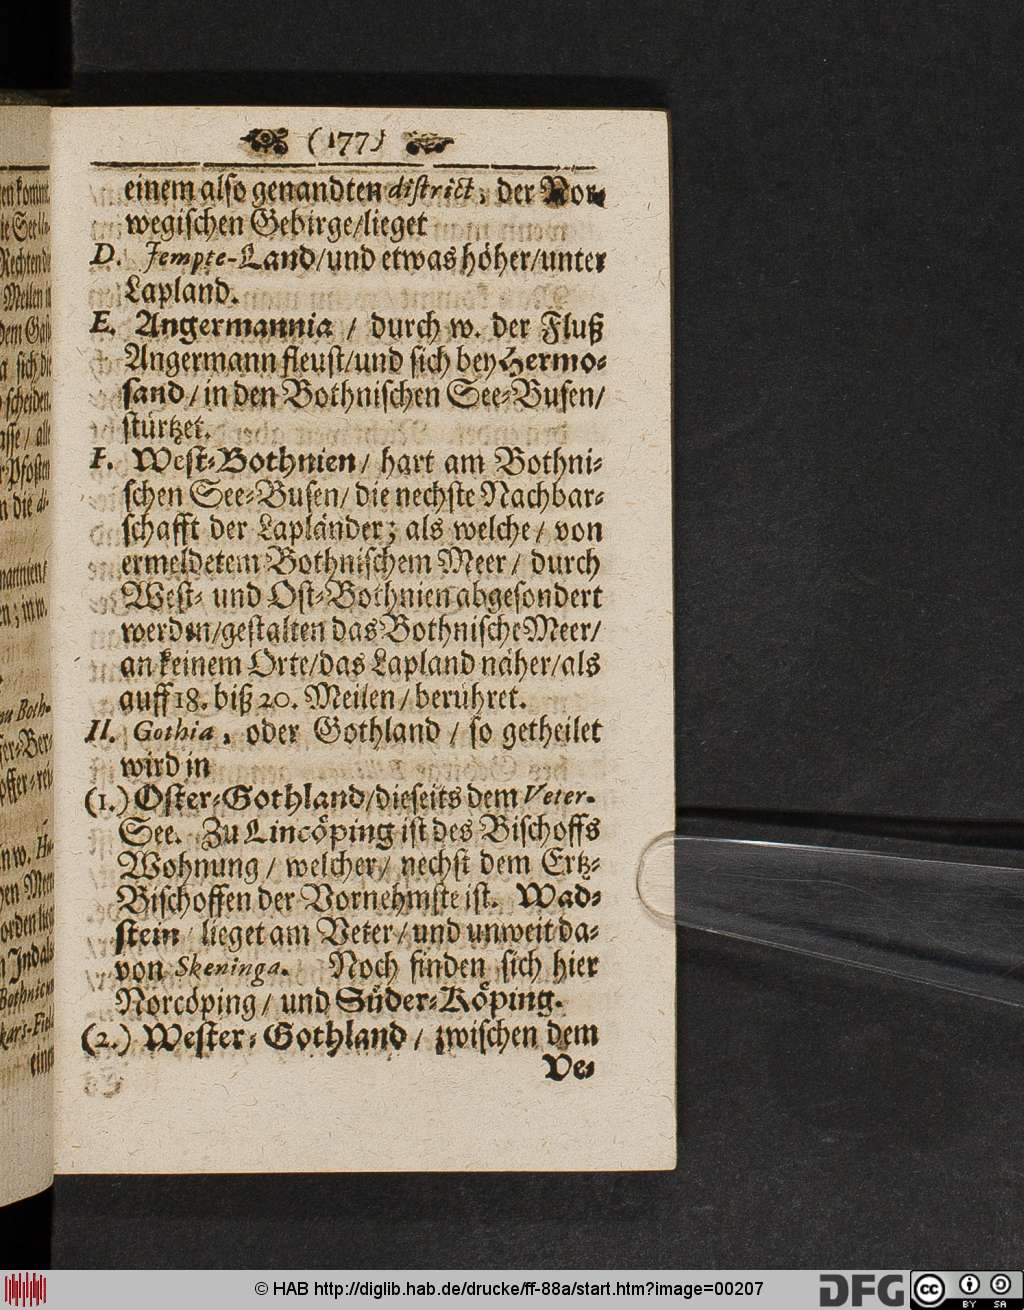 (177)
einem also genandten district, der Nor-
wegischen Gebirge/lieget
D. Jempte-Land/und etwas höher/unter
Lapland.
E. Angermannia / durch w. der Fluß
Angermann fleust/und sich bey Hermo-
sand/in den Bothnischen See-Busen/
stürtzet.
F. West-Bothnien/ hart am Bothni-
schen See-Busen/ die nechste Nachbar-
schafft der Lapländer; als welche/ von
ermeldetem Bothnischem Meer/ durch
West- und Ost-Bothnien abgesondert
werden/gestalten das Bothnische Meer/
an keinem Orte/das Lapland näher/als
auff 18. biß 20. Meilen/ berühret.
II. Gothia, oder Gothland / so getheilet
wird in
(1.) Oster-Gothland/dieseits dem Veter-
See. Zu Lincöping ist des Bischoffs
Wohnung / welcher/ nechst dem Ertz-
Bischoffen der Vornehmste ist. Wad-
stein lieget am Veter/ und unweit da-
von Skeninga. Noch finden sich hier
Norcöping/ und Süder-Köping.
(2.) Wester-Gothland/ zwischen dem
Ve-
© HAB http://diglib.hab.de/drucke/ff-88a/start.htm?image=00207
DFG
CC BY SA